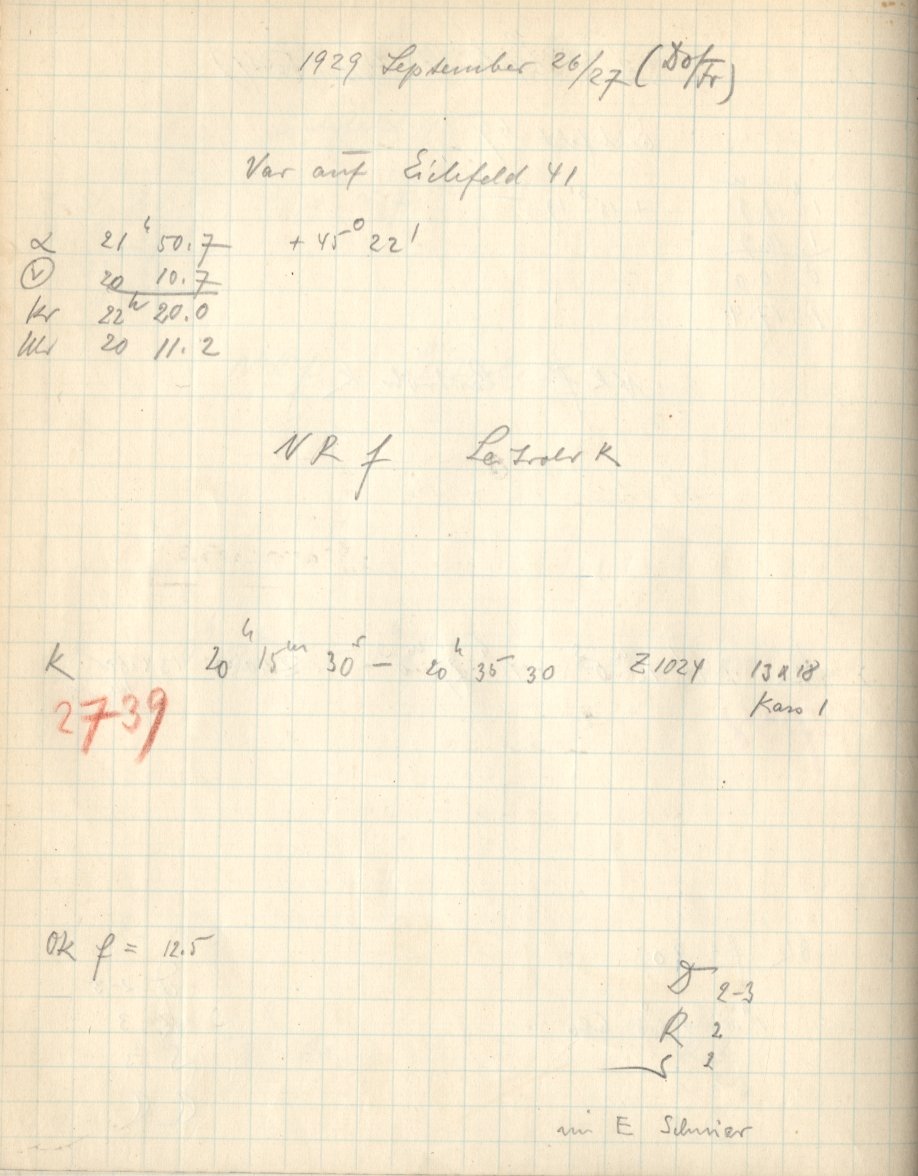 1929 September 26/27 (Do/Fr)
Var auf Eichfeld 41
α 21ʰ 50.7 + 45° 22'
Ⓥ 20 10.7
Kr 22ʰ 20.0
Uhr 20 11.2
N R f
K 20ʰ 15ᵐ 30ˢ — 20ʰ 35 30 Z 1024 13 x 18
Kass 1
2739
OK f = 12.5
D 2-3
R 2
S 2
E Schnier